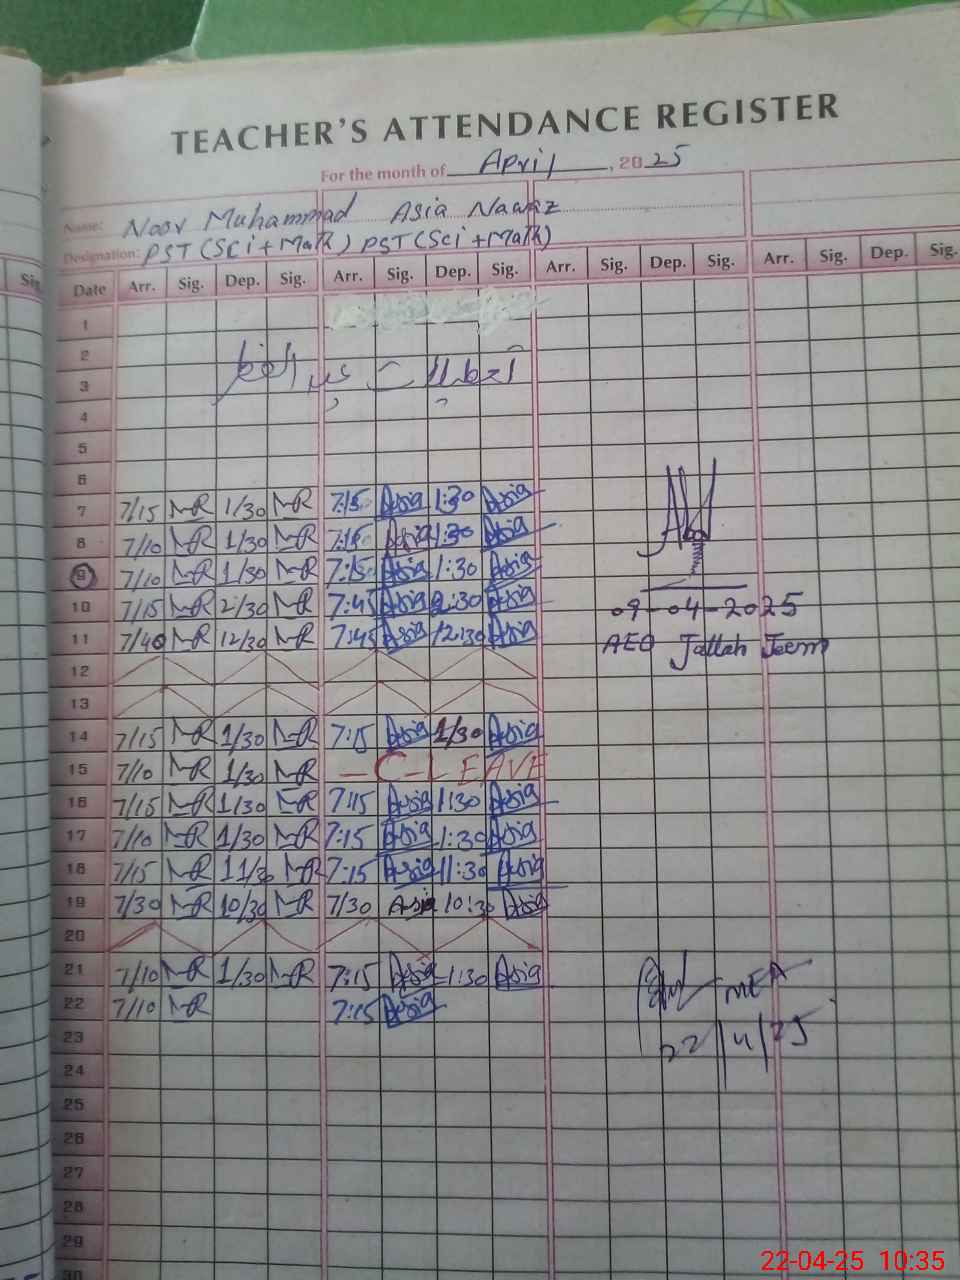 TEACHER'S ATTENDANCE REGISTER
For the month of April, 2025
Name: Noor Muhammad Asia Nawaz
Designation: PST (Sci + Math) PST (Sci + Math)
Date Arr. Sig. Dep. Sig. Arr. Sig. Dep. Sig. Arr. Sig. Dep. Sig. Arr. Sig. Dep. Sig.
1
2
3
4
5
6
7 7/15 NR 1/30 NR 7:15 Asia 1:30 Asia
8 7/10 NR 1/30 NR 7:15 Asia 1:30 Asia
9 7/10 NR 1/30 NR 7:15 Asia 1:30 Asia
10 7/15 NR 2/30 NR 7:45 Asia 2:30 Asia 09-04-2025
11 7/40 NR 12/30 NR 7:45 Asia 12:30 Asia AEO Jallah Jeem
12
13
14 7/15 NR 1/30 NR 7:15 Asia 1/30 Asia
15 7/10 NR 1/30 NR - C-LEAVE
16 7/15 NR 1/30 NR 7:15 Asia 1:30 Asia
17 7/10 NR 1/30 NR 7:15 Asia 1:30 Asia
18 7/15 NR 11/30 NR 7:15 Asia 11:30 Asia
19 7/30 NR 10/30 NR 7/30 Asia 10:30 Asia
20
21 7/10 NR 1/30 NR 7:15 Asia 1:30 Asia MEA
22 7/10 NR 7:15 Asia
23 22/4/25
24
25
26
27
28
29
30
22-04-25 10:35